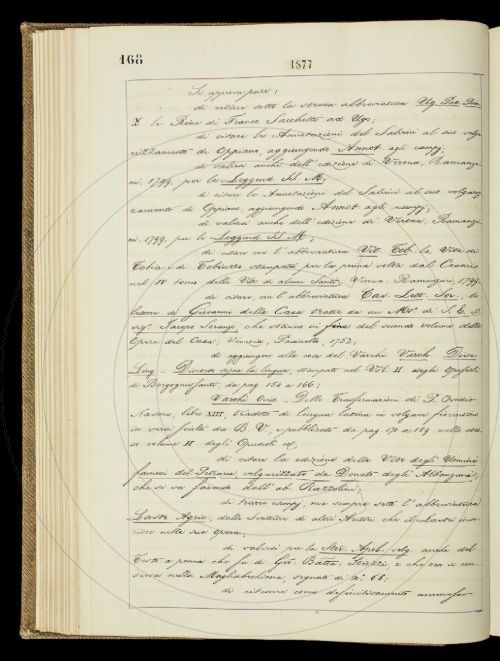 168
1877
Si approva pure:
di citare sotto la stessa abbreviatura Ug. Pac. Rim
2 le Rime di Franco Sacchetti ad Ugo;
di citare le Annotazioni del Salvini al suo volga
rizzamento di Oppiano, aggiungendo Annot agli esempj;
di valersi anche dell'edizione di Verona, Ramanzi
ni, 1799, per la Leggend. SS. M;
di citare le Annotazioni del Salvini al suo volgariz
zamento di Oppiano, aggiungendo Annot agli esempj;
di valersi anche dell'edizione di Verona, Ramanzi
ni, 1799, per la Leggend. SS. M;
di citare con l'abbreviatura Vit. Tob. la Vita di
Tobia e Tobiuzzo stampata per la prima volta dal Cesari
nel IV tomo delle Vite di alcuni Santi, Verona, Ramanzini, 1799;
di citare con l'abbreviatura Cas. Lett. Sor. le
lettere di Giovanni della Casa tratte da un Ms. di S. E. il
sig. Jacopo Soranzo, che stanno in fine del secondo volume delle
Opere del Casa, Venezia, Pasinello, 1752;
di aggiungere alle cose del Varchi Varch. Disc.
Ling. - Discorso sopra la lingua, stampato nel Vol. II degli Opuscoli
di Borgognissanti, da pag. 154 a 166;
Varchi Ovid. - Delle Trasformazioni di P. Ovidio
Nasone, libro XIII tradotto di lingua latina in volgare fiorentino
in versi sciolti da B. V. e pubblicato da pag. 170 a 189 nello stes
so volume II degli Opuscoli cit,
di citare la edizione delle Vite degli Uomini
famosi del Petrarca volgarizzate da Donato degli Albanzani,
che si va facendo dall'ab. Razzolini;
di trarre esempj, ma sempre sotto l'abbreviatura
Lastr. Agric., dalle Scritture di altri Autori che il Lastri inse
risce nelle sue opere;
di valersi per la Stor. Apoll. volg. anche del
Testo a penna che fu di Gio. Batta.
nella Magliabechiana, segnato di n.° 68;
di ritenere come definitivamente